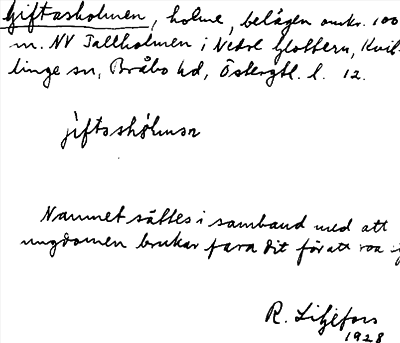 Giftasholmen, holme, belägen omkr. 100
m. NV Tallholmen i Nedre Glottern, Kvil-
linge sn, Bråbo hd, Östergtl. l. 12.
jiftashòlmən
Namnet sättes i samband med att
ungdomen brukar fara dit för att roa
R. Liljefors
1928